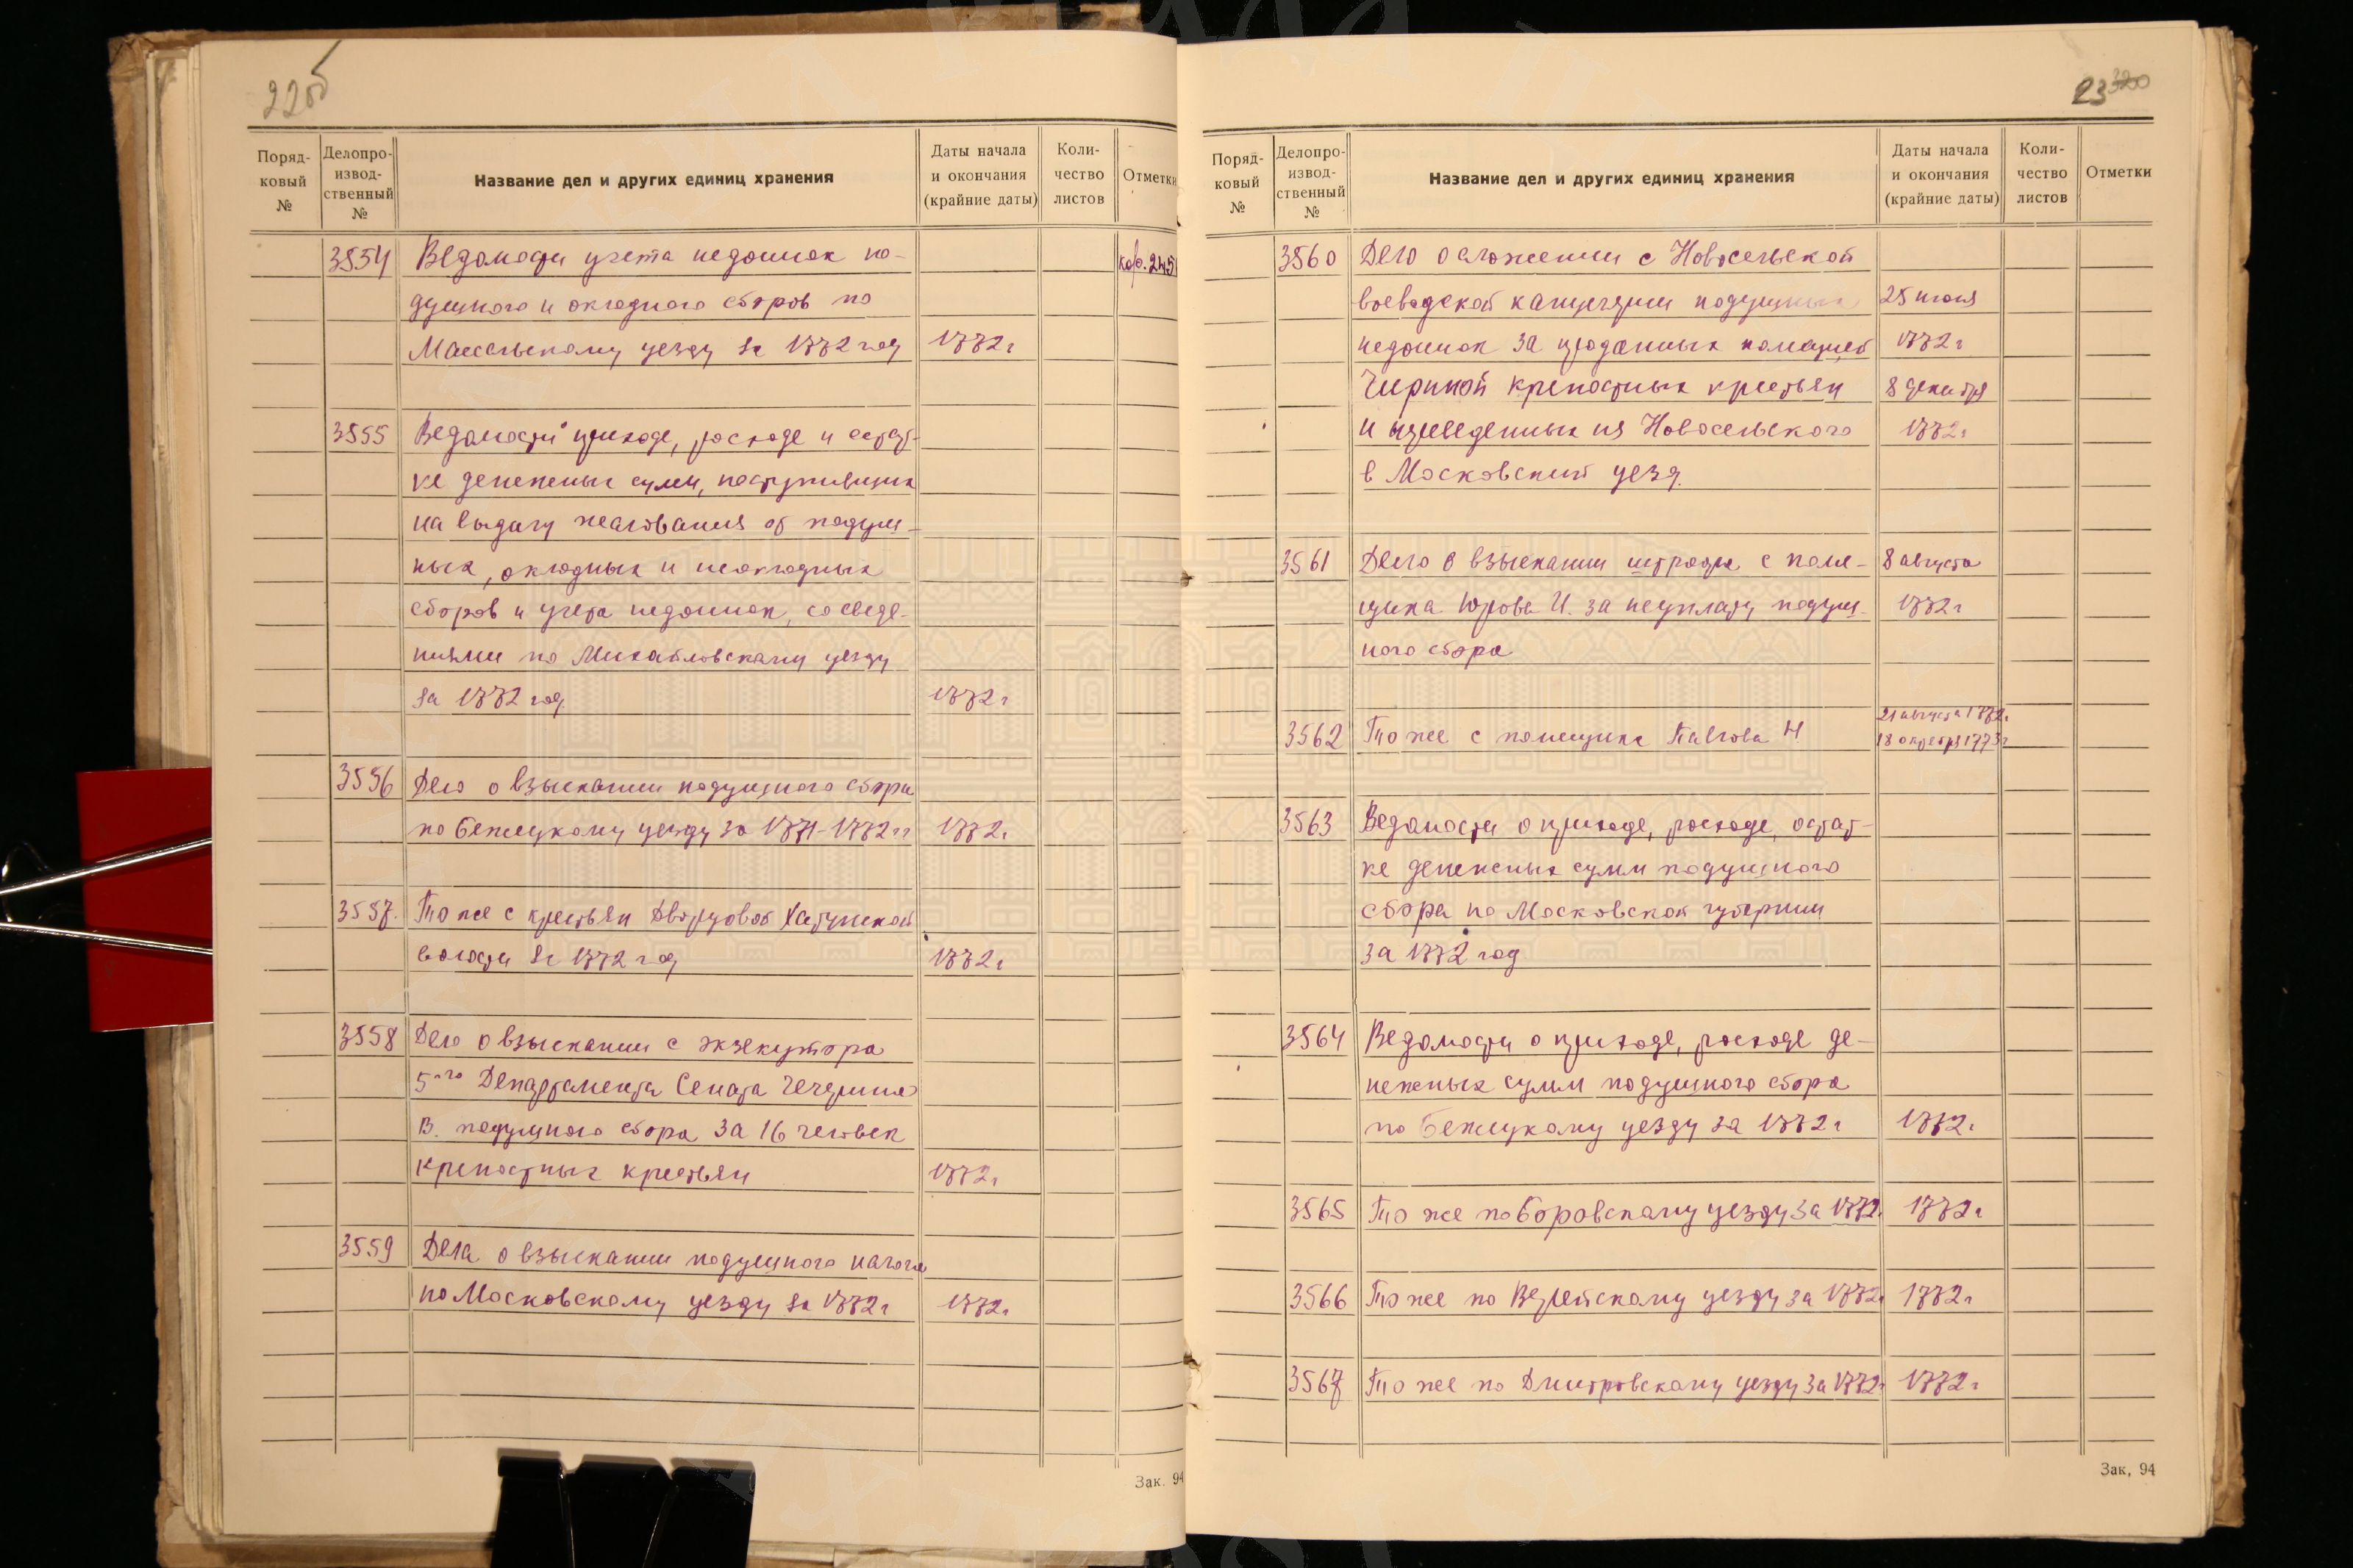 22об
Поряд-
ковый
№
Делопро-
извод-
ственный
№
Название дел и других единиц хранения
Даты начала
и окончания
(крайние даты)
Коли-
чество
листов
Отметки
3554 Ведомости учета недоимок по- кор. 245
душного и окладного сборов по
уезду за 1772 год 1772 г
3555 Ведомости приходе, расходе и остат-
ке денежных сумм, поступивших
на выдачу жалования от подуш-
ных, окладных и неокладных
сборов и учета недоимок, со сведе-
ниями по Михайловскому уезду
за 1772 год 1772 г
3556 Дело о взыскании подушного сбора
по Бежецкому уезду за 1771-1772 гг 1772 г
3557. То же с крестьян Дворцовой Хатунской
волости за 1772 год 1772 г
3558 Дело о взыскании с экзекутора
5-го Департамента Сената
В. подушного сбора за 16 человек
крепостных крестьян 1772 г
3559 Дела о взыскании подушного налога
по Московскому уезду за 1772 г 1772 г
Зак. 94
23 320
Поряд-
ковый
№
Делопро-
извод-
ственный
№
Название дел и других единиц хранения
Даты начала
и окончания
(крайние даты)
Коли-
чество
листов
Отметки
3560 Дело о сложении с Новосельской
воеводской канцелярии подушных 25 июля
недоимок за проданных помещ. 1772 г
крепостных крестьян 8 декабря
и переведенных из Новосельского 1772 г
в Московский уезд.
3561 Дело о взыскании штрафа с поме- 8 августа
щика Юрова И. за неуплату подуш- 1772 г
ного сбора
21 августа 1772 г
3562 То же с помещика Павлова Н 18 октября 1773 г
3563 Ведомости о приходе, расходе, остат-
ке денежных сумм подушного
сбора по Московской губернии
за 1772 год
3564 Ведомости о приходе, расходе де-
нежных сумм подушного сбора
по Бежецкому уезду за 1772 г 1772 г
3565 То же по Боровскому уезду за 1772 г 1772 г
3566 То же по Верейскому уезду за 1772 г 1772 г
3567 То же по Дмитровскому уезду за 1772 г 1772 г
Зак, 94